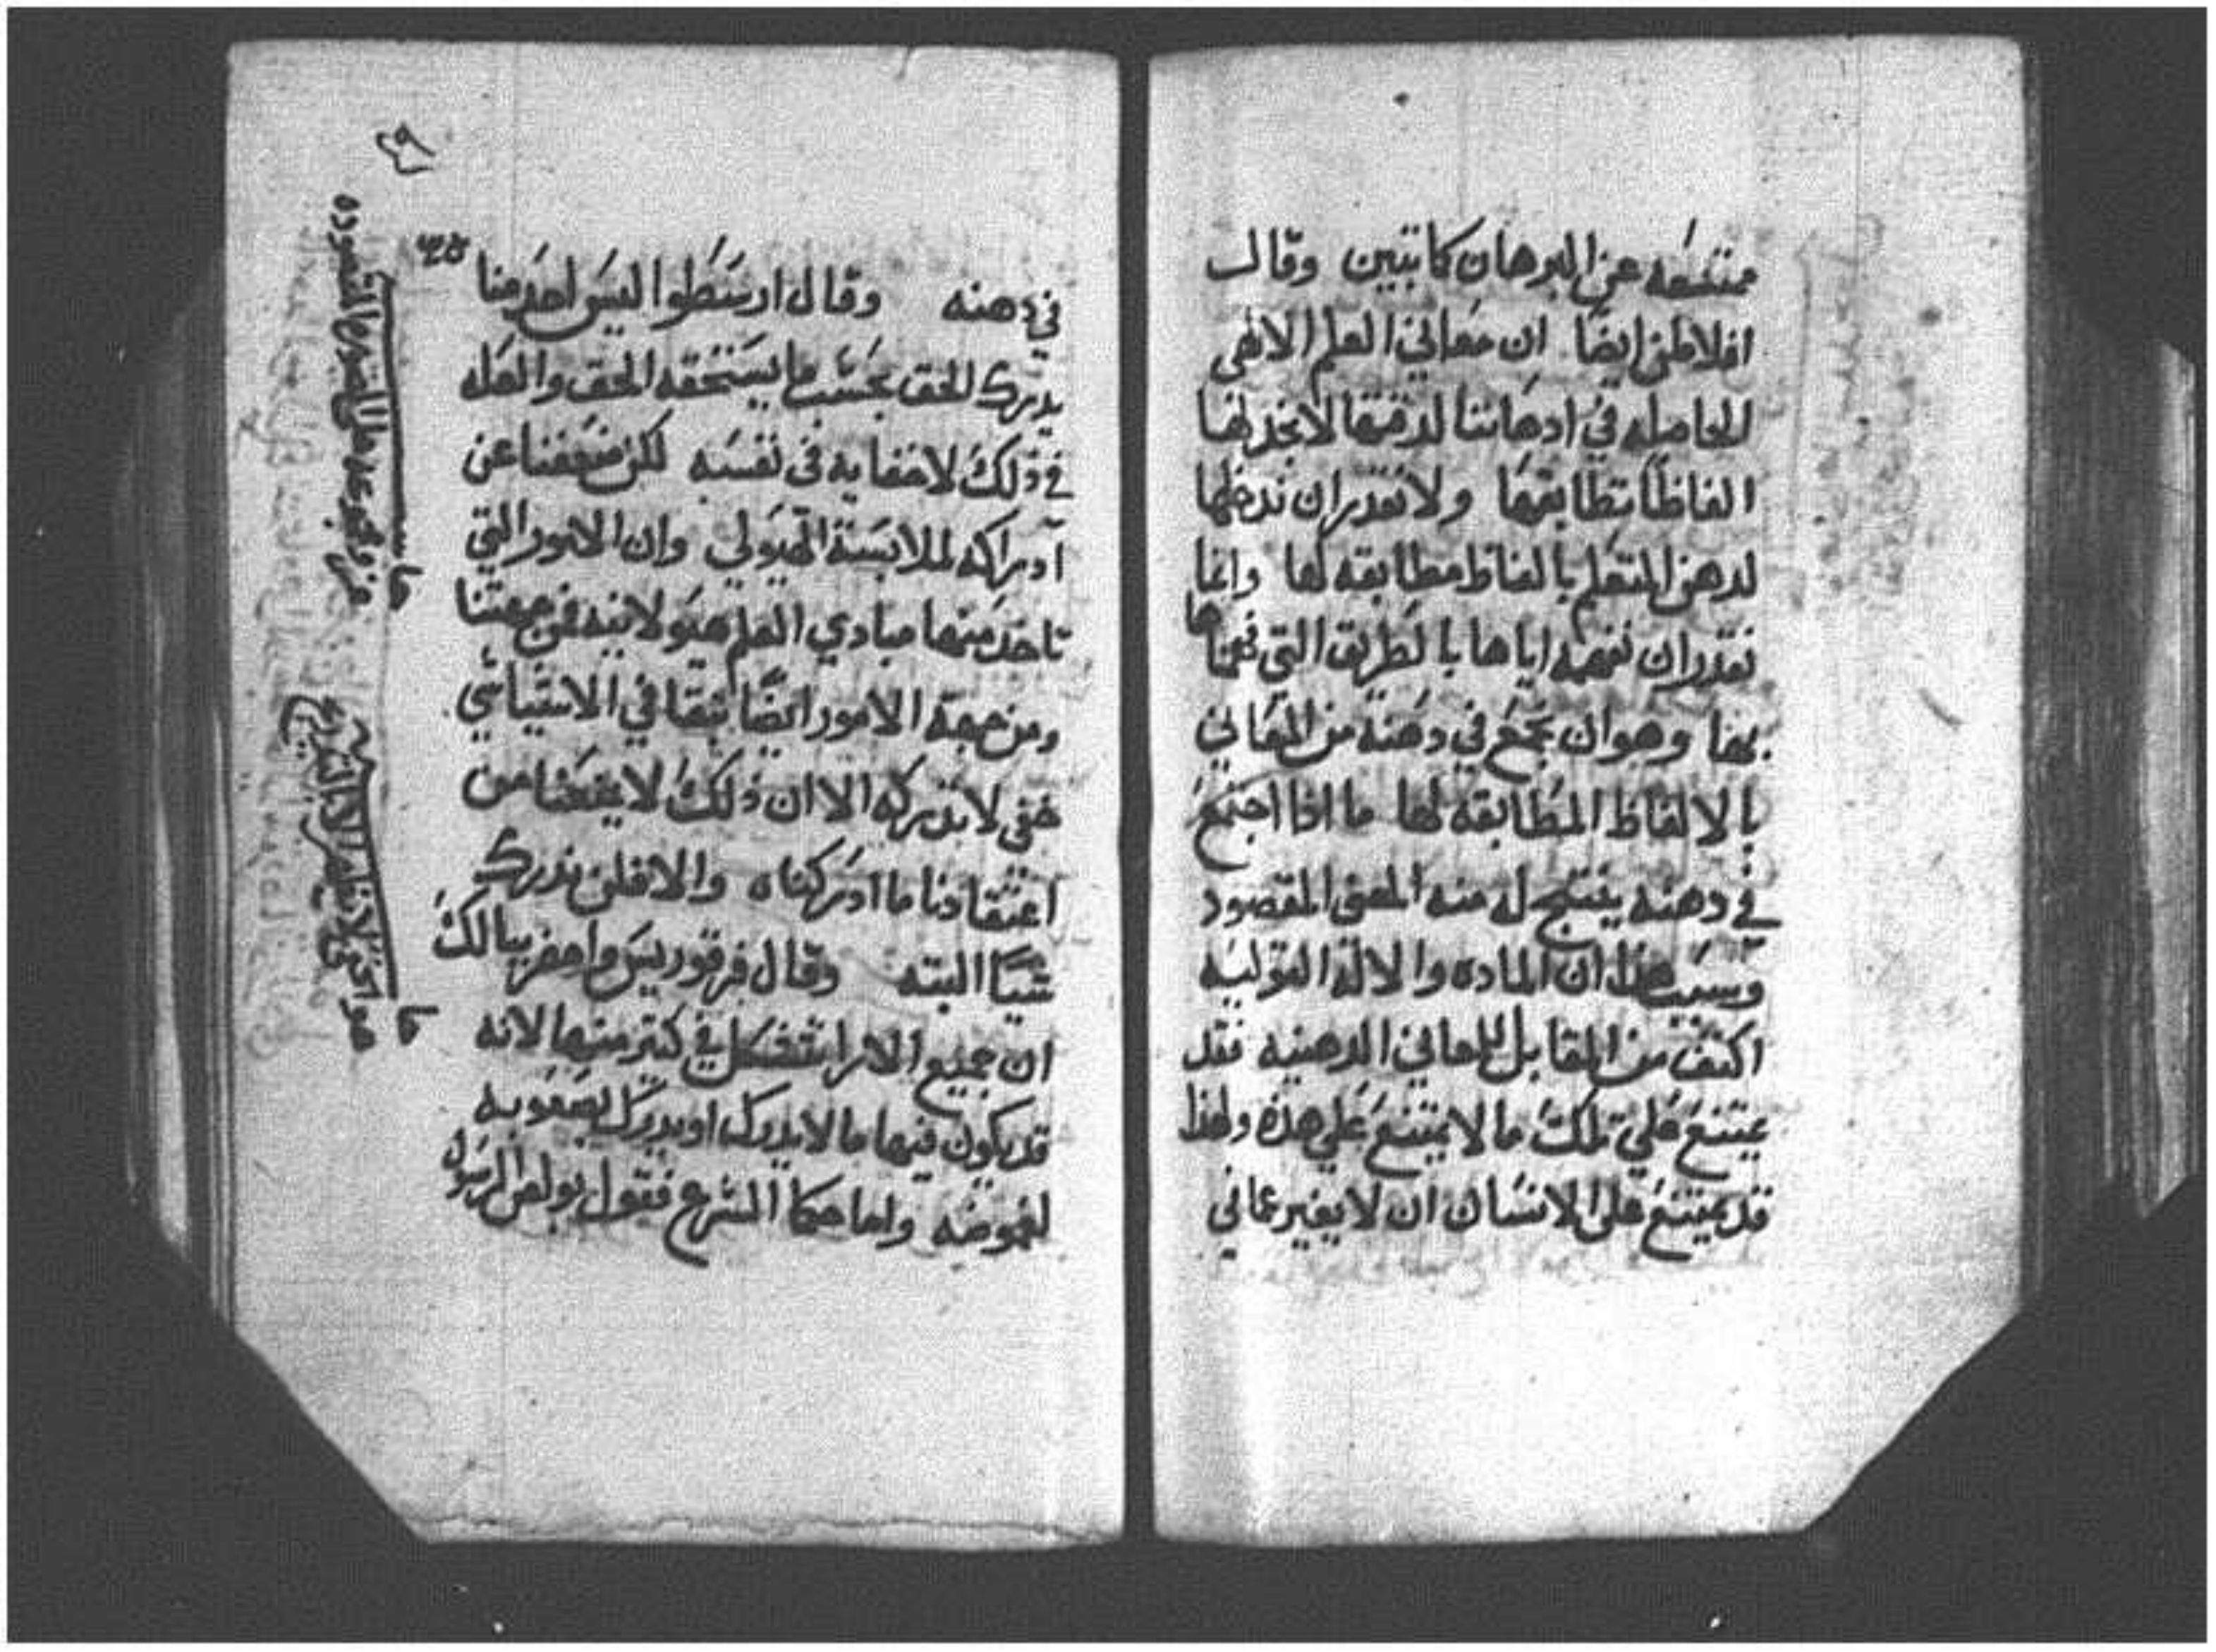 ممتنعه عن البرهان كما تبين وقال
افلاطن ايضًا ان معاني العلم الالاهي
الحاصله في ادهاننا لدقتها لا نجد لها
الفاظًا تطابقها ولا نقدر ان ندخلها
لدهن المتعلم بالفاظ مطابقه لها وانما
نقدر ان نفهمه اياها بالطريق التي فهمناها
بها وهو ان نجمع في دهنه من المعاني
بالالفاظ المطابقه لها ما اذا اجتمع
في دهنه ينتج له منه المعنى المقصود
وسبب هذا ان الماده والالة القوليه
اكثف من المقابل للمعاني الدهنيه فقد
يمتنع علي تلك ما لا يمتنع علي هذه ولهذا
قد يمتنع على الانسان ان لا يعبر عما في
في دهنه وقال ارسطوا ليس احد منا
يدرك الحق بحسب ما يستحقه الحق والعله
في ذلك لا خفايه في نفسه لكن ضعفنا عن
ادراكه لملابسة الهيولي وان الامور التي
تاخذ منها مبادي العلم هيولانيه فمن جهتنا
ومن جهة الامور ايضًا تبقا في الاشيا شي
خفي لا ندركه الا ان ذلك لا يمنعنا من
اعتقادنا ما ادركناه والا فلن ندرك
شيًا البته وقال فرفوريس وامغر بيالك
ان جميع الامر انتشكل في كثير منها لانه
قد يكون فيها ما لا يدرك او يدرك بصعوبه
لغموضه واما حكما الشرع فقول بولص الرسول